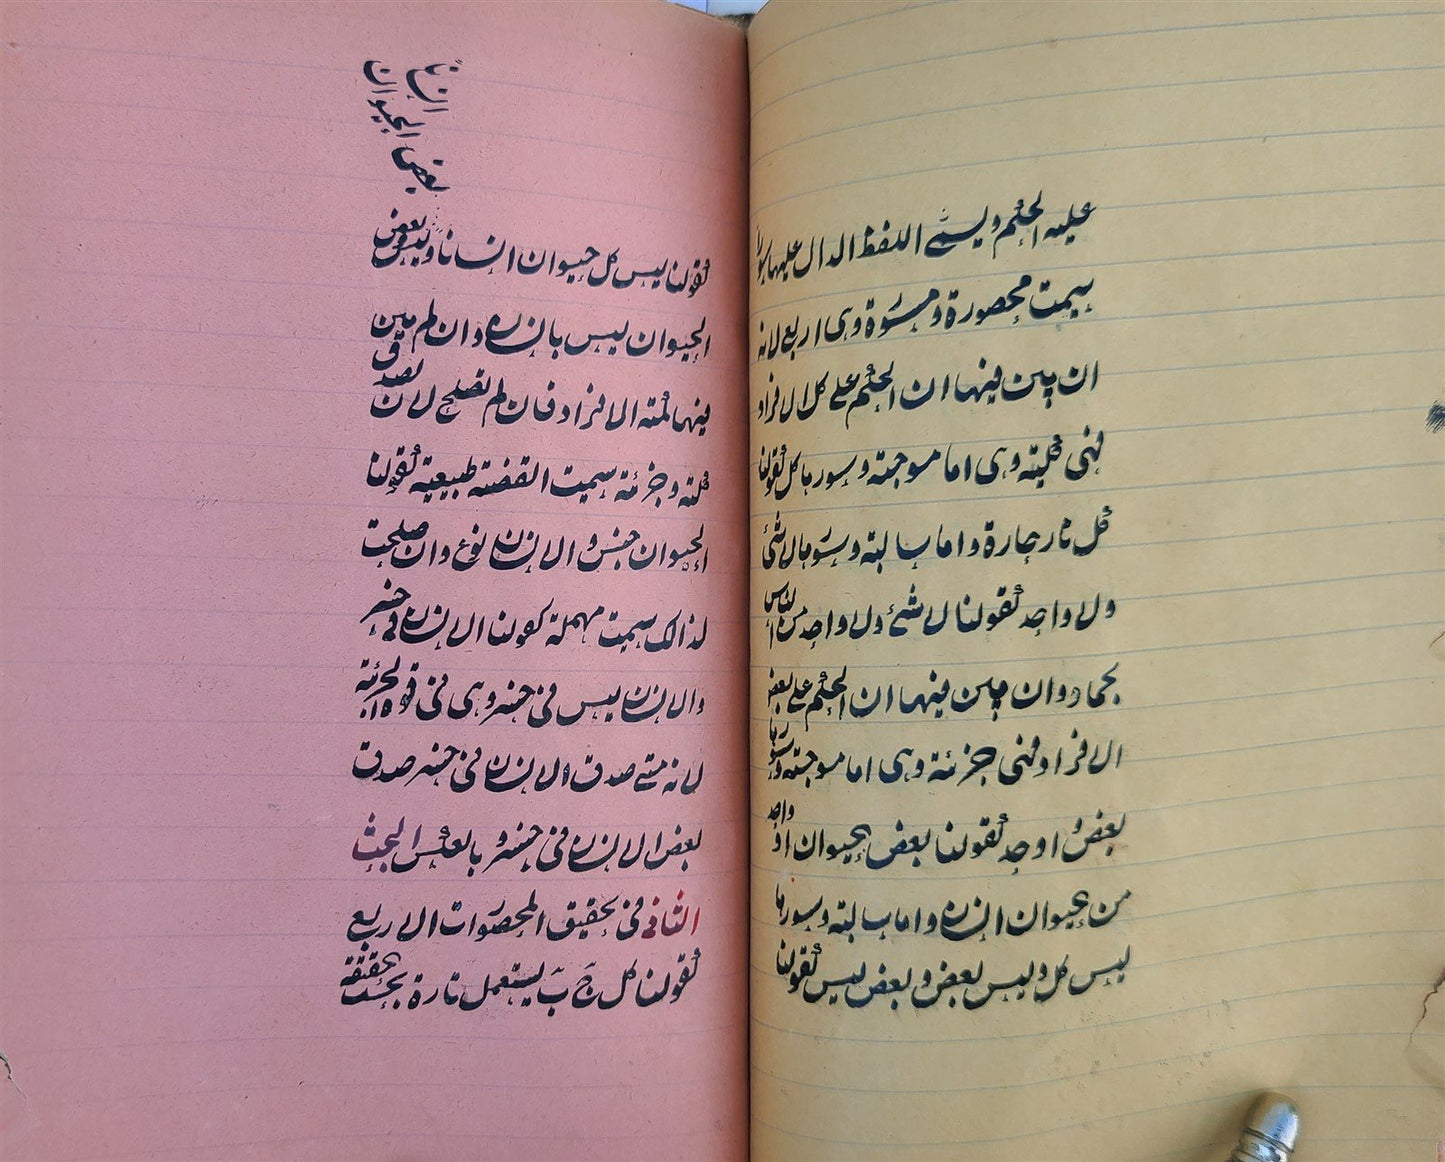 عليه الحكم ويسمى اللفظ الدال عليها سورا
سميت محصورة ومسورة وهى اربع لانه
ان بين فيها ان الحكم على كل الافراد
فهى كلية وهى اما موجبة وسورها كل كقولنا
كل نار حارة واما سالبة وسورها لا شئ
ولا واحد كقولنا لا شئ ولا واحد من الناس
بجماد وان بين فيها ان الحكم على بعض
الافراد فهى جزئية وهى اما موجبة وسورها
بعض و واحد كقولنا بعض الحيوان او واحد
من الحيوان انسان واما سالبة وسورها
ليس كل وليس بعض وبعض ليس كقولنا
كقولنا ليس كل حيوان انسانا وليس بعض
الحيوان ليس بانسان وان لم يبين
فيها كمية الافراد فان لم تصلح لان تصدق
كلية وجزئية سميت القضية طبيعية كقولنا
الحيوان جنس و الانسان نوع وان صلحت
لذالك سميت مهملة كقولنا الانسان فى خسر
والانسان ليس فى خسر وهى فى قوة الجزئية
لانه متى صدق الانسان فى خسر صدق
بعض الانسان فى خسر و بالعكس البحث
الثانى فى تحقيق المحصورات الاربع
كقولنا كل ج ب يستعمل تارة بحسب الحقيقة
بعض الحيوان
انسان